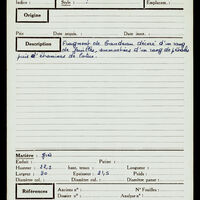 Indice : Style : Emplacem. :
Origine
Prix Date acquis. : Date inscr. :
Description Fragment de bandeau décoré d'un rang
de feuilles, surmontées d'un rang de
puis d'
Matière :
Enfoui : Patine :
Hauteur : haut. tenon : Longueur :
Largeur : 30 Epaisseur : 21,5 Poids :
Diamètre ouv. : Diamètre col. : Diamètre pans. :
Références Ancien n° : N° Fouilles :
Dossier n° : Analyse n° :